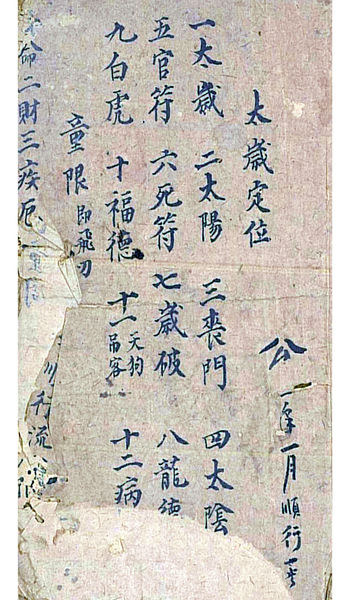 公 一年一月順行
太歲定位
一太歲 二太陽 三喪門 四太陰
五官符 六死符 七歲破 八龍德
九白虎 十福德 十一天狗吊客 十二病
童限即飛刀
命二財三疾厄